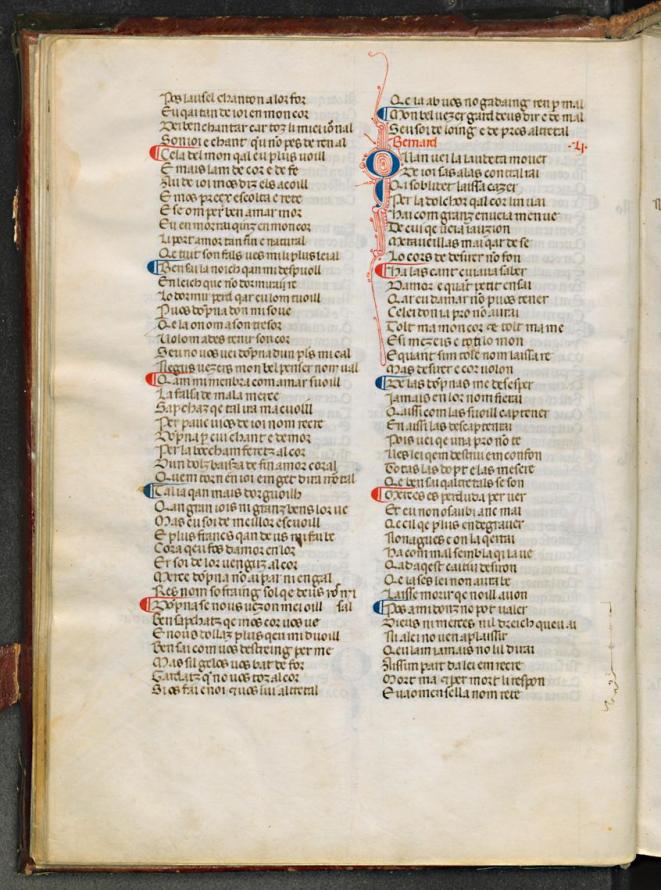 Pos lausel chanton a lor for
Eu qai tan de ioi en mon cor
Dei ben chantar car toz li miei iornal
Son ioi e chant qu no pes de ren al
Cela del mon qal eu plus voill
E mais lam de cor e de fe
Au de ioi mos diz els acoill
E mos precs escolta e rete
E se om per ben amar mor
Eu en morrai qinz en mon cor
Li port amor tan fin e natural
Qe tuit son fals ves mi li plus leial
Ben sai la noich qan mi despuoll
En leich que no dormirai re
Lo dormir perd qar eu lom tuoill
P uos dopna don mi soue
Qe la on om a son tresor
Uol om ades tenir son cor
Seu no uos uei dopna dun plus mi cal
Negus uezers mon bel penser nom ual
Qam mi menbra com amar suoill
La falsa de mala merce
Sapchaz qe tal ira ma cuoill
Per pauc uius de ioi nom recre
Dopna p cui chant e demor
Per la bocham feretz al cor
Dun dolz baisza de fin amor coral
Quem torn en ioi em get dira mortal
Tal ia qan mais dorguoilh
Qan gran iois ni granz bens lor ue
Mas eu soi de meillor escuoill
E plus francs qan deus mi fai be
Cora qeu fos damor en lor
Er soi de lor uenguz al cor
Merce dopna no ai par ni engal
Res nom sofraing sol qe deus uos mi sal
Dopna se nous uezon mei oill
Ben sapchatz qe mos cor uos ue
E nous dollaz plus qeu mi duoill
Ben sai com uos destreing per me
Mas sil gelos uos bat de for
Gardatz q no uos toz al cor
Sius fai enoi et uos lui atretal
Qe ia ab uos no gadaing ren p mal
Mon bel uezer gard deus dir e de mal
Seu soi de loing e de pres atretal
Bernard
Qan uei la laudeta mouer
De ioi sas alas contral rai
Qi soblidet laissa cazer
Per la dolchor qal cor lin uai
Hai com granz enueia men ue
De cui qe ueia iauzion
Merauillas mai qar de se
Lo cors de desirer no fon
Ha las cant cuiaua saber
Damor e quan petit en sai
Qar eu damar no puos tener
Celei don ia pro no aurai
Tolt ma mon cor et tolt ma me
E si mezeis e tot lo mon
E quant sim tolc nom laissa re
Mas desirer e cor uolon
De las dopnas me desesper
Iamais en lor nom fierai
Qaissi com las suoill captener
En aissi las descaptenrai
Pois uei qe una pro no te
Ues lei qem destrui em confon
Totas las dopt e las mescre
Qe ben sai qaltretals se son
Merces es perduda per uer
Et eu non o saubi anc mai
Qe cil qe plus en degrauer
Non agues e on la qerrai
Ha com mal sembla qi la ue
Qad aqest caitiu desiron
Qe ia ses lei non aura be
Laisse morir qe noill aiuon
Pos a mi donz no pot ualer
Dieus ni merces nil dreich queu ai
Ni a lei no uen a plaissir
Qeu lam iamais no lil dirai
Aissim part da lei em recre
Mort ma et per mort li respon
E uaomen sella nom rete